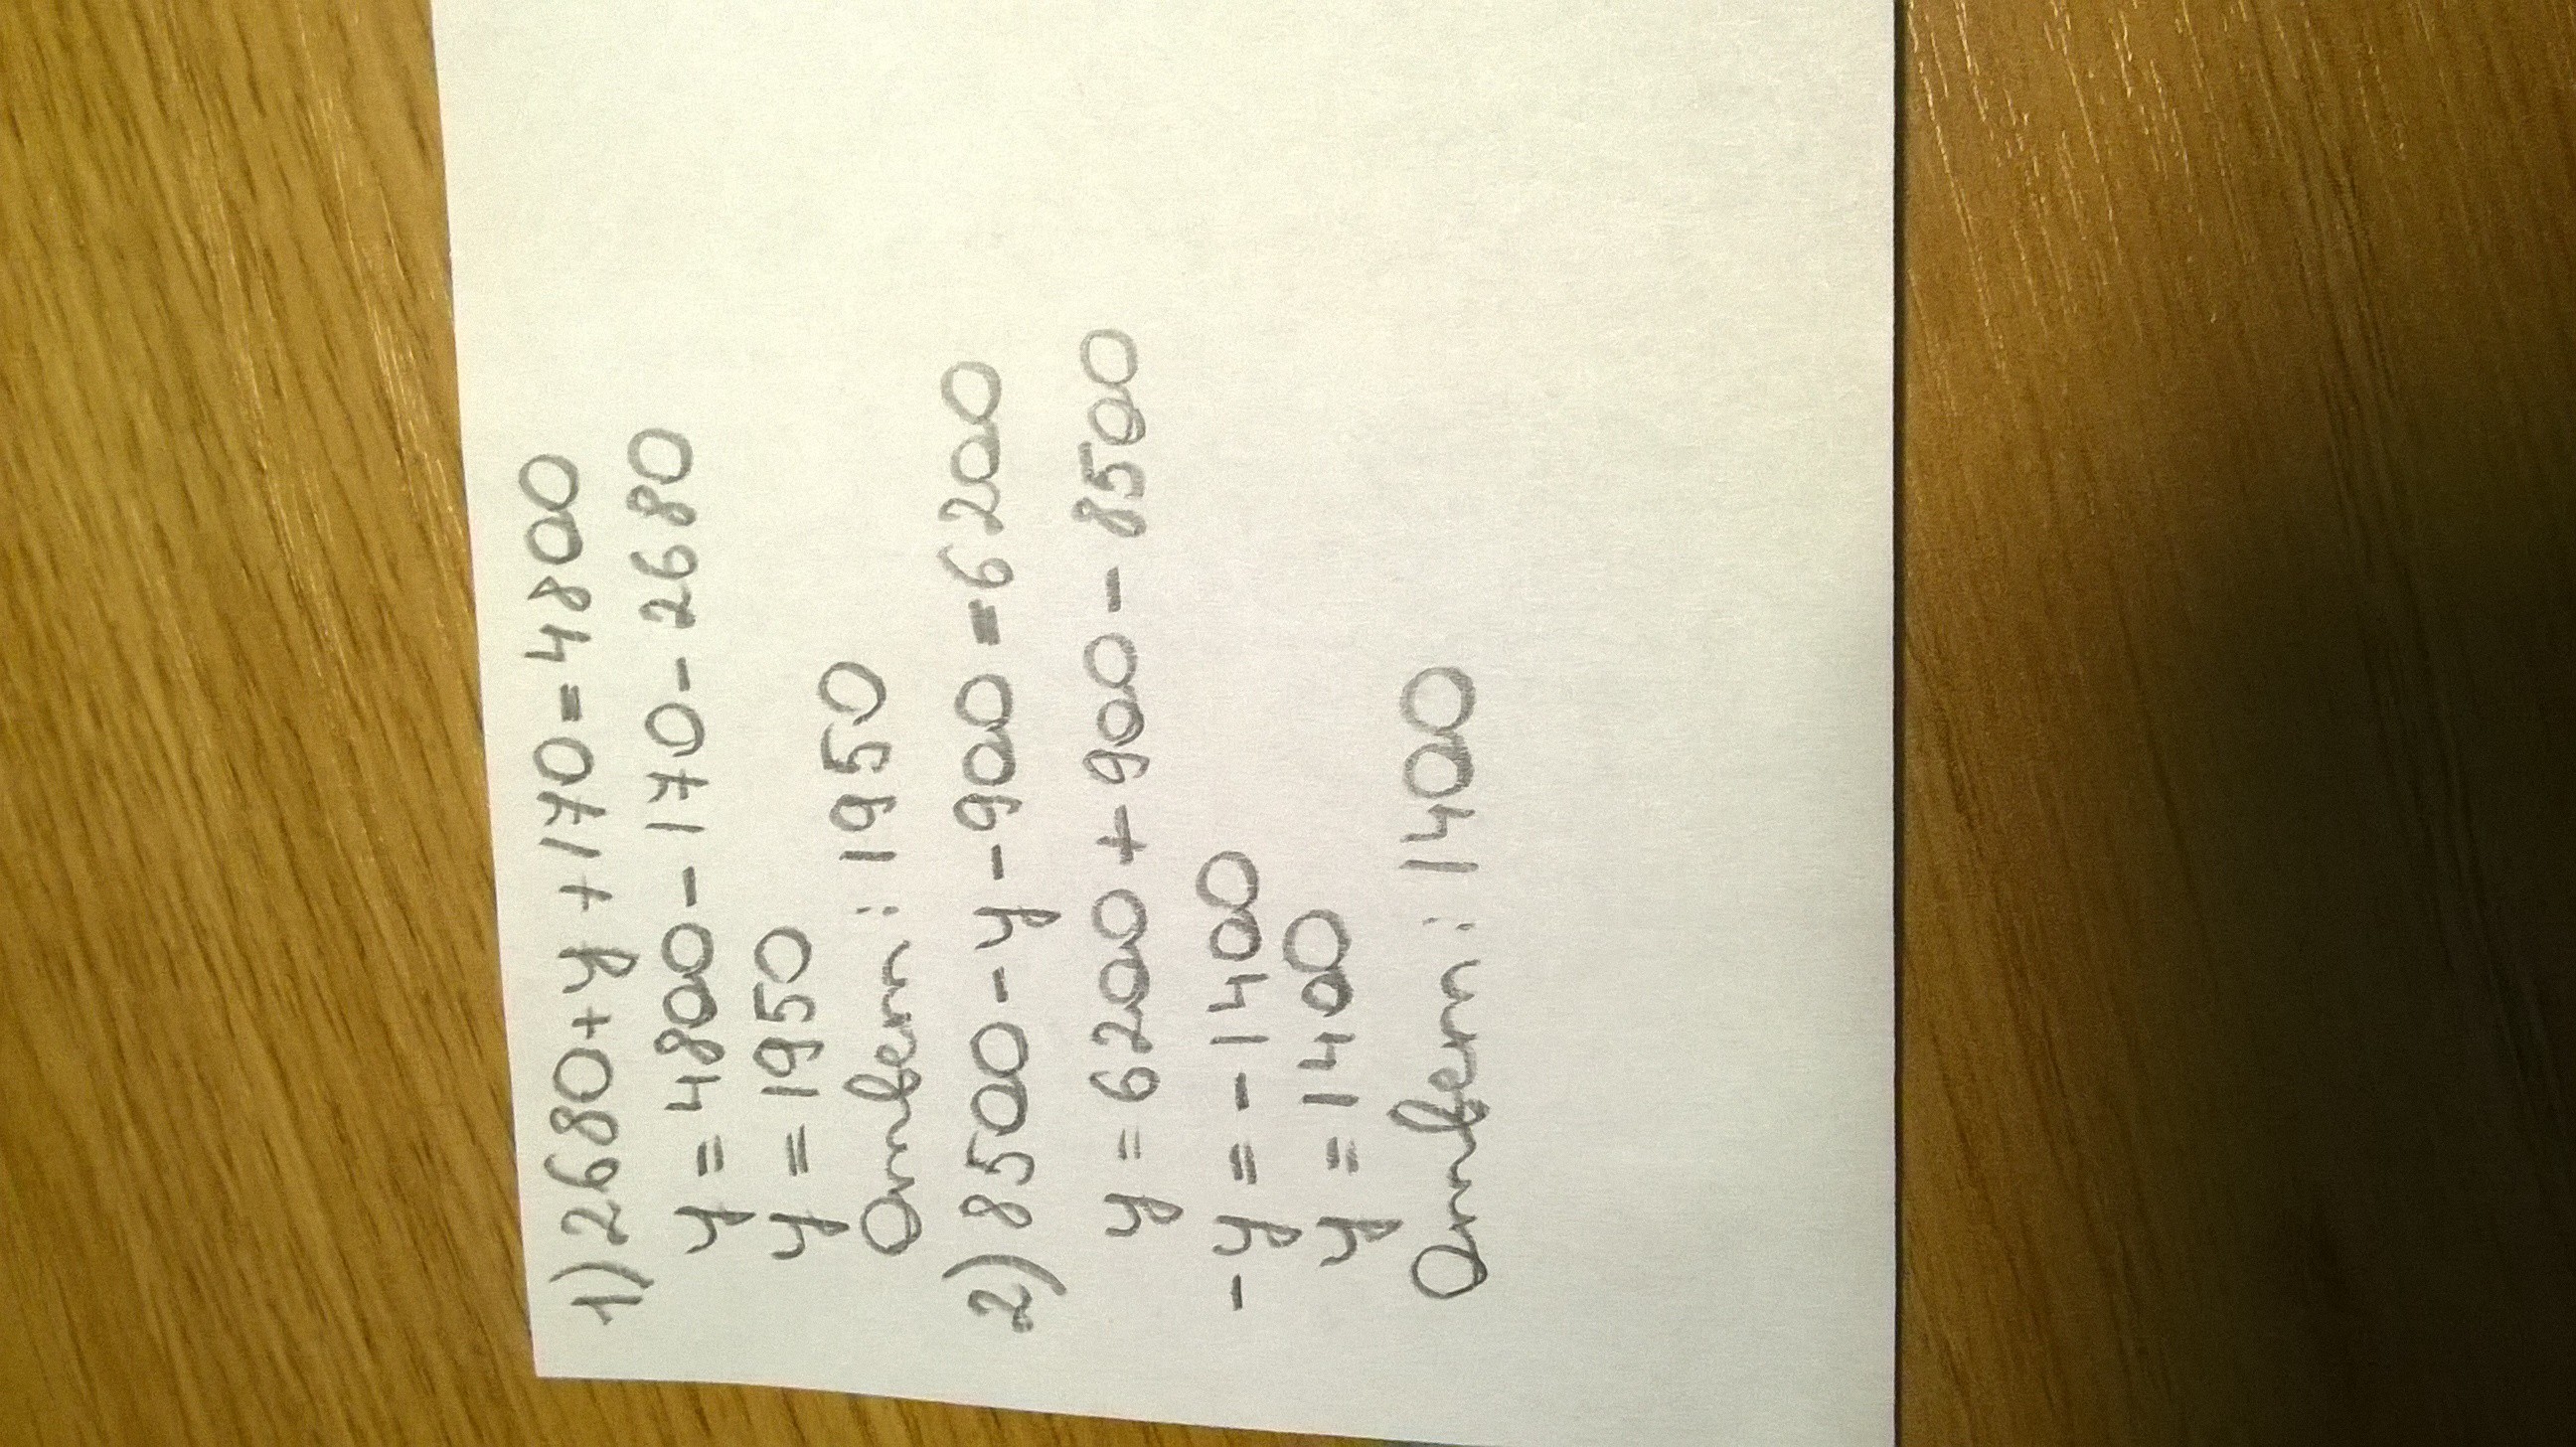 1) 2680+y+170=4800
y = 4800-170-2680
y = 1950
Ответ: 1950
2) 8500-y-900=6200
y = 6200+900-8500
-y = -1400
y = 1400
Ответ: 1400